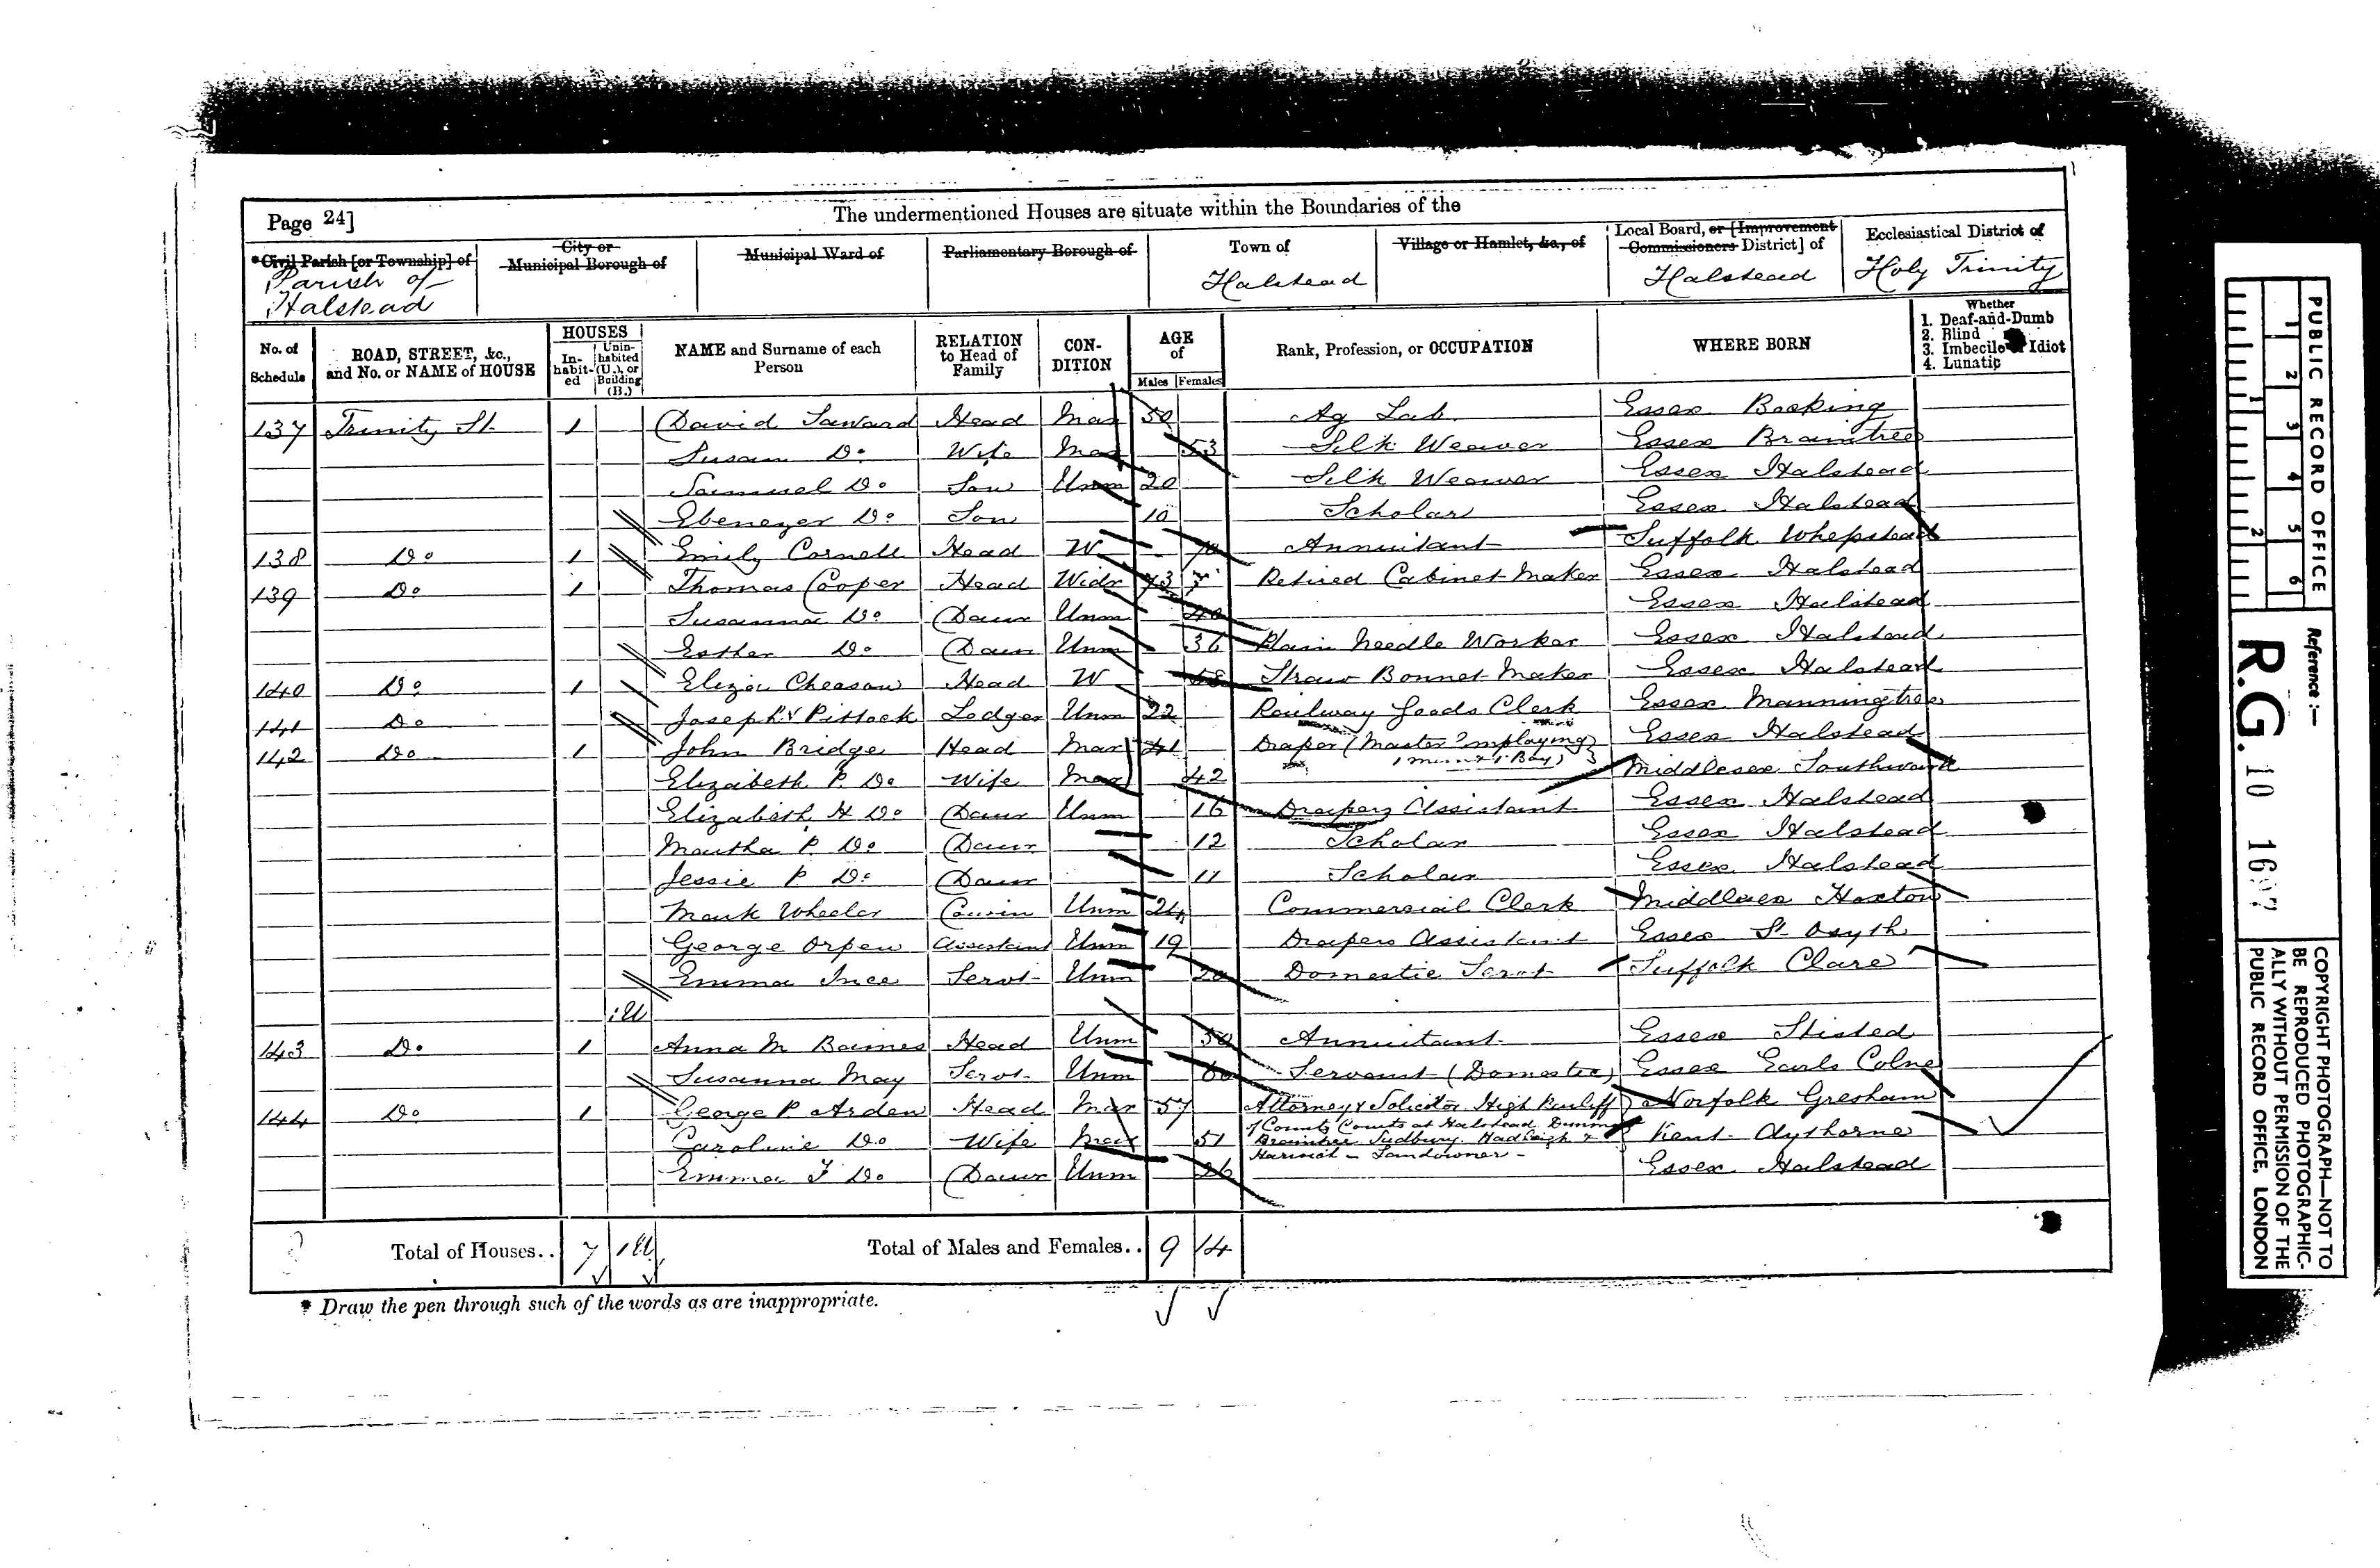 Page 24]
The undermentioned Houses are situate within the Boundaries of the
*Civil Parish [or Township] of
Parish of
Halstead
City or
Municipal Borough of
Municipal Ward of
Parliamentary Borough of
Town of
Halstead
Village or Hamlet, &c., of
Local Board, or [Improvement
Commissioners District] of
Halstead
Ecclesiastical District of
Holy Trinity
No. of Schedule
ROAD, STREET, &c., and No. or NAME of HOUSE
HOUSES
In-habit-ed
Unin-habited (U.), or Building (B.)
NAME and Surname of each Person
RELATION to Head of Family
CON-DITION
AGE of
Males Females
Rank, Profession, or OCCUPATION
WHERE BORN
Whether
1. Deaf-and-Dumb
2. Blind
3. Imbecile or Idiot
4. Lunatic
137 Trinity St. 1 David Saward Head Mar 50 Ag Lab. Essex Bocking
Susan Do Wife Mar 53 Silk Weaver Essex Braintree
Samuel Do Son Unm 20 Silk Weaver Essex Halstead
Ebenezer Do Son 10 Scholar Essex Halstead
138 Do 1 Emily Cornell Head W Annuitant Suffolk Whepstead
139 Do 1 Thomas Cooper Head Widr 73 Retired Cabinet Maker Essex Halstead
Susanna Do Daur Unm 40 Essex Halstead
Esther Do Daur Unm 36 Plain Needle Worker Essex Halstead
140 Do 1 Eliza Cheason Head W 58 Straw Bonnet Maker Essex Halstead
141 Do Joseph Pittock Lodger Unm 22 Railway Goods Clerk Essex Manningtree
142 Do 1 John Bridge Head Mar 41 Draper (Master Employing Essex Halstead
1 & 1 Boy)
Elizabeth P. Do Wife Mar 42 Middlesex Southwark
Elizabeth H Do Daur Unm 16 Drapers Assistant Essex Halstead
Martha P. Do Daur 12 Scholar Essex Halstead
Jessie P Do Daur 11 Scholar Essex Halstead
Mark Wheeler Cousin Unm 24 Commercial Clerk Middlesex Hoxton
George Orpen Assistant Unm 19 Drapers Assistant Essex St Osyth
Emma Ince Servt Unm 20 Domestic Servt Suffolk Clare
1U
143 Do 1 Anna M Baines Head Unm 50 Annuitant Essex Stisted
Susanna May Servt Unm 60 Servant (Domestic) Essex Earls Colne
144 Do 1 George P Arden Head Mar 57 Attorney & Solicitor High Bailiff Norfolk Gresham
of County Courts at Halstead Dunmow
Caroline Do Wife Mar 51 Braintree Sudbury Hadleigh & Kent Aythorne
Harwich - Landowner -
Emma F Do Daur Unm 26 Essex Halstead
Total of Houses.. 7 1U
Total of Males and Females.. 9 14
* Draw the pen through such of the words as are inappropriate.
PUBLIC RECORD OFFICE
1 2 3 4 5 6
1 2
Reference :—
R.G. 10
COPYRIGHT PHOTOGRAPH—NOT TO
BE REPRODUCED PHOTOGRAPHIC-
ALLY WITHOUT PERMISSION OF THE
PUBLIC RECORD OFFICE, LONDON